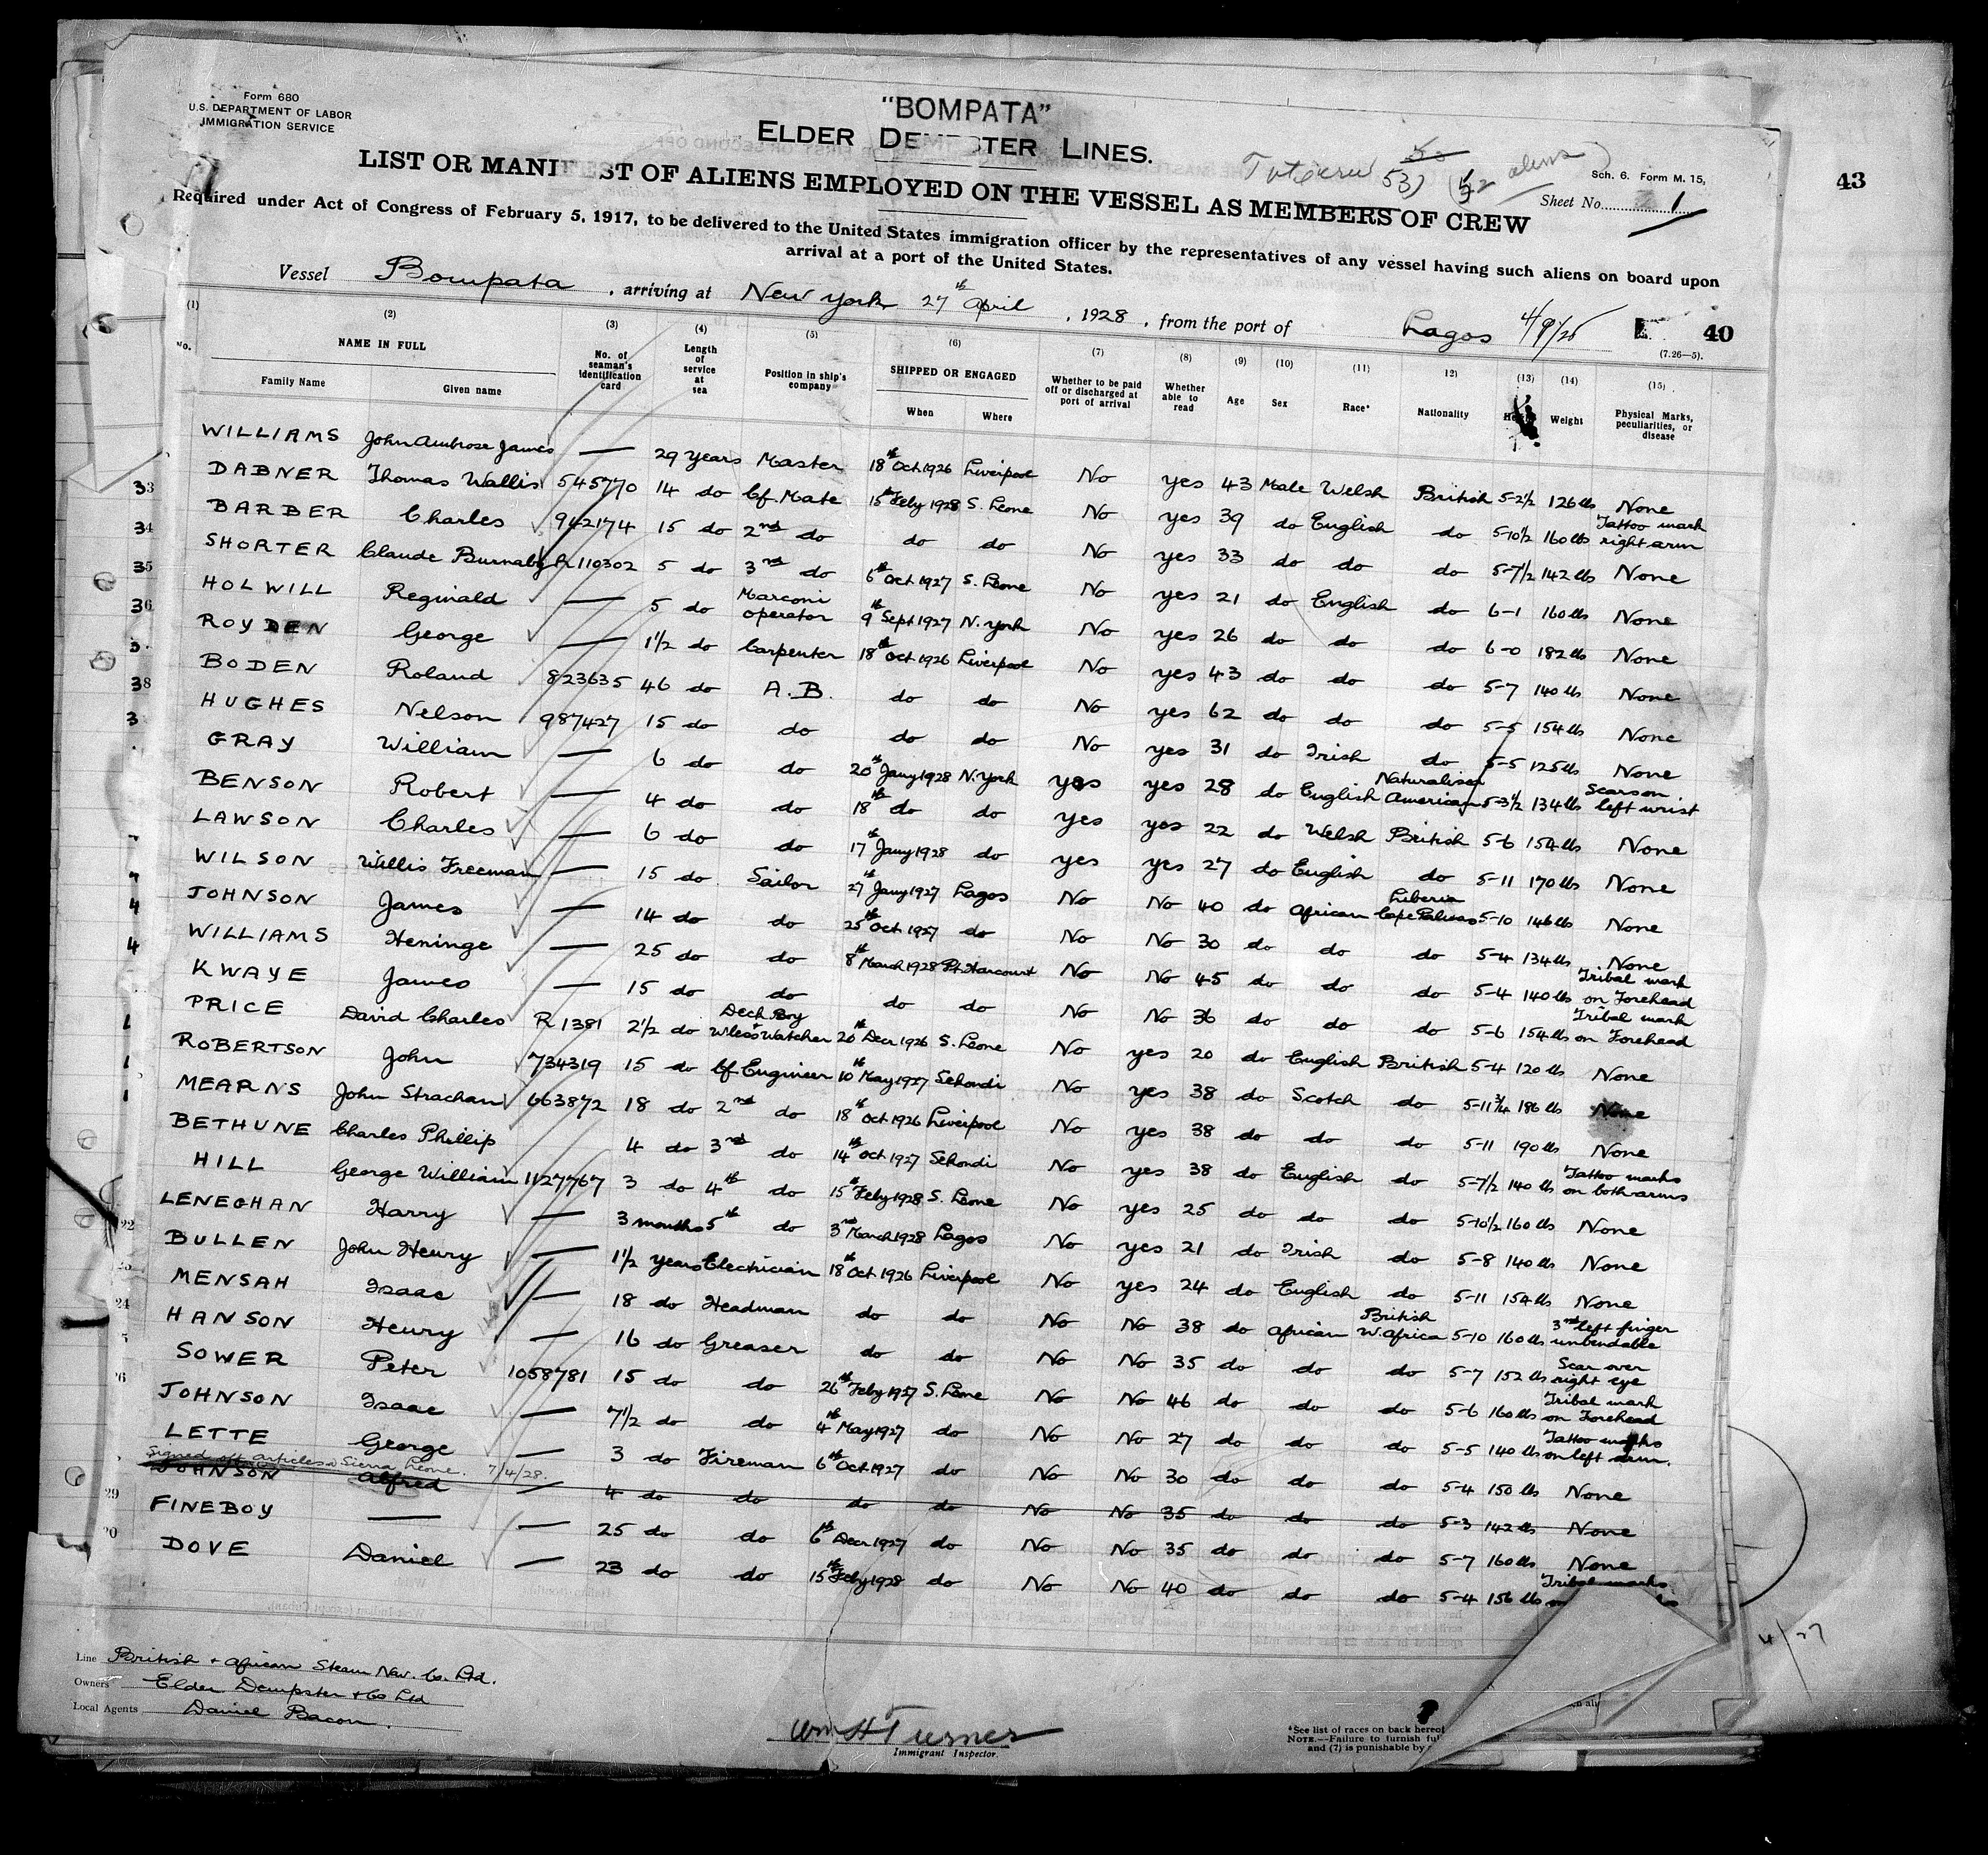 Form 680
U.S. DEPARTMENT OF LABOR
IMMIGRATION SERVICE
"BOMPATA"
ELDER DEMPSTER LINES.
53) (52 aliens)
Sch. 6. Form M. 15,
Sheet No. 1
43
LIST OR MANIFEST OF ALIENS EMPLOYED ON THE VESSEL AS MEMBERS OF CREW
Required under Act of Congress of February 5, 1917, to be delivered to the United States immigration officer by the representatives of any vessel having such aliens on board upon
arrival at a port of the United States.
Vessel Bompata, arriving at New York 27th April, 1928, from the port of Lagos
40
(7.26—5).
(1) (2) (3) (4) (5) (6) (7) (8) (9) (10) (11) 12) (13) (14) (15)
No. NAME IN FULL Family Name Given name No. of seaman's identification card Length of service at sea Position in ship's company SHIPPED OR ENGAGED When Where Whether to be paid off or discharged at port of arrival Whether able to read Age Sex Race* Nationality Height Weight Physical Marks, peculiarities, or disease
WILLIAMS John Ambrose James — 29 years Master 18th Oct 1926 Liverpool No yes 43 Male Welsh British 5-2½ 126 lbs None
33 DABNER Thomas Wallis 545770 14 do Cf. Mate 15th Feby 1928 S. Leone No yes 39 do English do 5-10½ 160 lbs Tattoo mark right arm
34 BARBER Charles 942174 15 do 2nd do do do No yes 33 do do do 5-7½ 142 lbs None
35 SHORTER Claude Burnaby R.110302 5 do 3rd do 6th Oct 1927 S. Leone No yes 21 do English do 6-1 160 lbs None
36 HOLWILL Reginald — 5 do Marconi operator 9th Sept 1927 N. York No yes 26 do do do 6-0 182 lbs None
3 ROYDEN George — 1½ do Carpenter 18th Oct 1926 Liverpool No yes 43 do do do 5-7 140 lbs None
38 BODEN Roland 823635 46 do A.B. do do No yes 62 do do do 5-5 154 lbs None
3 HUGHES Nelson 987427 15 do do do do No yes 31 do Irish do 5-5 125 lbs None
GRAY William — 6 do do 20th Jany 1928 N. York yes yes 28 do English Naturalised American 5-3½ 134 lbs Scars on left wrist
BENSON Robert — 4 do do 18th do do yes yes 22 do Welsh British 5-6 154 lbs None
LAWSON Charles — 6 do do 17th Jany 1928 do yes yes 27 do English do 5-11 170 lbs None
WILSON Willis Freeman — 15 do Sailor 27th Jany 1927 Lagos No No 40 do African Liberia Cape Palmas 5-10 146 lbs None
4 JOHNSON James — 14 do do 25th Oct 1927 do No No 30 do do do 5-4 134 lbs None
4 WILLIAMS Heninge — 25 do do 8th March 1928 Pt. Harcourt No No 45 do do do 5-4 140 lbs Tribal mark on Forehead
KWAYE James — 15 do do do do No No 36 do do do 5-6 154 lbs Tribal mark on Forehead
PRICE David Charles R 1381 2½ do Deck Boy + W'less Watcher 20th Decr 1926 S. Leone No yes 20 do English British 5-4 120 lbs None
ROBERTSON John 734319 15 do Cf. Engineer 10th May 1927 Sekondi No yes 38 do Scotch do 5-11¾ 186 lbs None
MEARNS John Strachan 663872 18 do 2nd do 18th Oct 1926 Liverpool No yes 38 do do do 5-11 190 lbs None
BETHUNE Charles Phillip 4 do 3rd do 14th Oct 1927 Sekondi No yes 38 do English do 5-7½ 140 lbs Tattoo marks on both arms
HILL George William 1127767 3 do 4th do 15th Feby 1928 S. Leone No yes 25 do do do 5-10½ 160 lbs None
22 LENEGHAN Harry — 3 months 5th do 3rd March 1928 Lagos No yes 21 do Irish do 5-8 140 lbs None
23 BULLEN John Henry — 1½ years Electrician 18th Oct 1926 Liverpool No yes 24 do English do 5-11 154 lbs None
24 MENSAH Isaac — 18 do Headman do do No No 38 do African British W. Africa 5-10 160 lbs 3rd left finger unbendable
5 HANSON Henry — 16 do Greaser do do No No 35 do do do 5-7 152 lbs Scar over right eye
26 SOWER Peter 1058781 15 do do 26th Feby 1927 S. Leone No No 46 do do do 5-6 160 lbs Tribal mark on Forehead
JOHNSON Isaac — 7½ do do 4th May 1927 do No No 27 do do do 5-5 140 lbs Tattoo marks on left arm.
LETTE George — 3 do Fireman 6th Oct 1927 do No No 30 do do do 5-4 150 lbs None
Signed off articles Sierra Leone. 7/4/28.
JOHNSON Alfred — 4 do do do do No No 35 do do do 5-3 142 lbs None
29 FINEBOY — — 25 do do 6th Decr 1927 do No No 35 do do do 5-7 160 lbs None
20 DOVE Daniel — 23 do do 15th Feby 1928 do No No 40 do do do 5-4 156 lbs Tribal marks
4/27
Line British + African Steam Nav. Co. Ltd.
Owners Elder Dempster + Co Ltd
Local Agents Daniel Bacon.
Wm H Turner
Immigrant Inspector.
*See list of races on back hereof
NOTE.—Failure to furnish
and (7) is punishable by